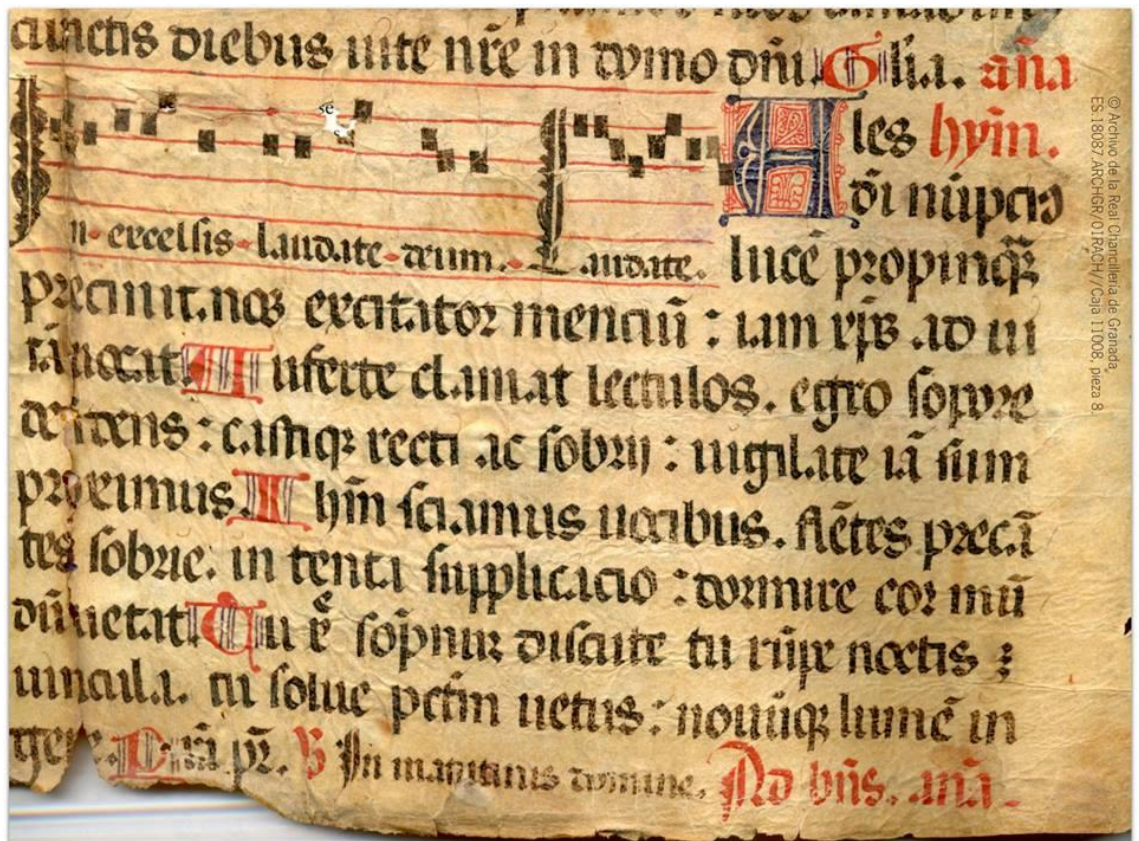 cunctis diebus uite nr̄e in domo dn̄i. Gl̄i.a. an̄a
In excelsis laudate deum. Laudate.
Ales hym̄.
di nūpcis
lucē propinq̄ꝫ
precinit. nos excitator mencīu : iam xp̄s ad ui
tā uocat Auferte clamat lectulos. egro sopore
desidens : castiqꝫ recti ac sobrij : uigilate iā sum
proximus. Ihm̄ sciamus uocibus. flētes precā
tes sobrie. in tenta supplicacio : dormire cor mū
dū uetat Tu xp̄e sop̄nuꝫ discute tu rūpe noctis :
uincula. tu solue pctm̄ uetus : nouūqꝫ lumē in
gere. D pr̄. In matutinis domine. Ad bn̄s. an̄a.
© Archivo de la Real Chancillería de Granada,
ES.18087.ARCHGR/01RACH//Caja 11008, pieza 8.